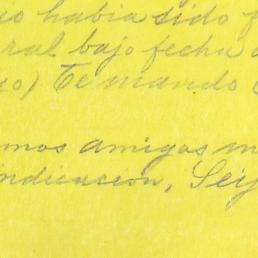 io habia sido f
ral bajo fecha d
so) Te mando
mos amigos m
ndicacion, Sej